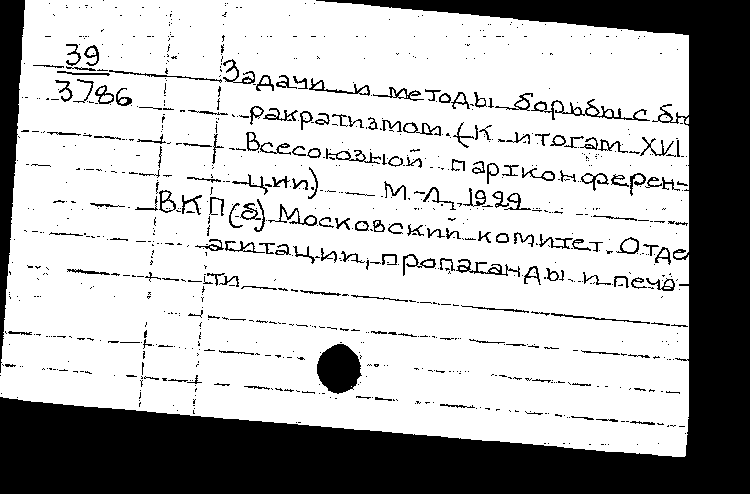 39
3786
Задачи и методы борьбы с бю
ракратизмом. (К итогам XVI
Всесоюзной партконферен-
ции) М.-Л., 1929
ВКП(б) Московский комитет. Отде
агитации, пропаганды и печа-
ти